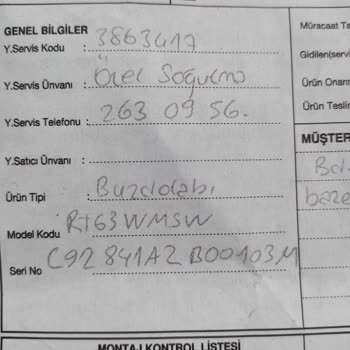 GENEL BİLGİLER
Y.Servis Kodu : 3863417
Y.Servis Ünvanı : Özel Soğutma
Y.Servis Telefonu : 263 09 56.
Y.Satıcı Ünvanı :
Ürün Tipi : Buzdolabı
Model Kodu : RT63WMSW
Seri No C92841AZB00103M
Müracaat Ta
Gidilen(servi
Ürün Onarı
Ürün Teslir
MÜŞTER
MONTAJ KONTROL LİSTESİ